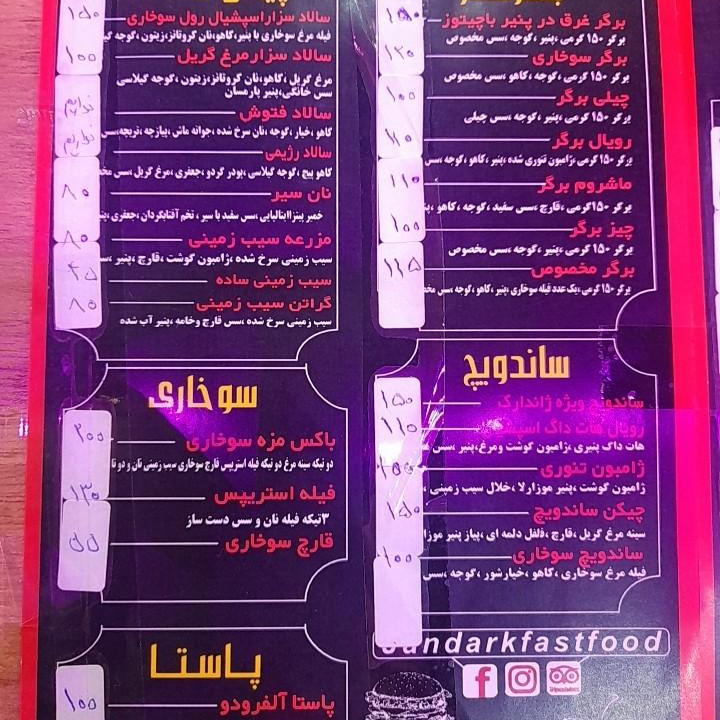 برگر غرق در پنیر باچیتوز
۱۵۰
برگر ۱۵۰ گرمی ،پنیر ،گوجه ،سس مخصوص
برگر سوخاری
۱۲۰
برگر ۱۵۰ گرمی ،گوجه ،کاهو ،سس مخصوص
چیلی برگر
۱۰۰
برگر ۱۵۰ گرمی، پنیر ،گوجه ،سس چیلی
رویال برگر
برگر ۱۵۰ گرمی ،ژامبون تنوری شده ،پنیر ،کاهو ،گوجه ،سس
ماشروم برگر
۱۱۰
برگر ۱۵۰گرمی ،قارچ ،سس سفید ،گوجه ،کاهو
چیز برگر
۱۰۰
برگر ۱۵۰ گرمی، پنیر ،گوجه ،سس مخصوص
برگر مخصوص
برگر ۱۵۰ گرمی،یک عدد فیله سوخاری ،پنیر ،کاهو ،گوجه ،سس
ساندویچ
ساندویچ ویژه ژاندارک
۱۵۰
رویال هات داگ
۱۱۰
هات داگ پنیری ،ژامبون گوشت ومرغ،پنیر ،سس
ژامبون تنوری
۱۵۵
ژامبون گوشت ،پنیر موزارلا ،خلال سیب زمینی ،
چیکن ساندویچ
۱۵۰
سینه مرغ گریل ،قارچ ،فلفل دلمه ای ،پیاز پنیر
ساندویچ سوخاری
۱۰۰
فیله مرغ سوخاری ،کاهو ،خیارشور ،گوجه ،سس
andarkfastfood
سالاد سزاراسپشیال رول سوخاری
۱۵۰
فیله مرغ سوخاری با پنیر،کاهو،نان کروتانز،زیتون ،گوجه
سالاد سزارمرغ گریل
۱۰۰
مرغ گریل ،کاهو،نان کروتانز،زیتون ،گوجه گیلاسی
سس خانگی،پنیر پارمسان
سالاد فتوش
نداریم
کاهو ،خیار ،گوجه ،نان سرخ شده ،جوانه ماش ،پیازچه ،تربچه،سس
سالاد رژیمی
نداریم
کاهو پیچ ،گوجه گیلاسی ،پودر گردو ،جعفری ،مرغ گریل ،سس
نان سیر
۸۰
خمیر پیتزاایتالیایی ،سس سفید با سیر ، تخم آفتابگردان ،جعفری
مزرعه سیب زمینی
۸۰
سیب زمینی سرخ شده ،ژامبون گوشت ،قارچ ،پنیر
سیب زمینی ساده
۴۵
گراتن سیب زمینی
۸۰
سیب زمینی سرخ شده ،سس قارچ وخامه ،پنیر آب شده
سوخاری
باکس مزه سوخاری
۲۰۰
دو تیکه سینه مرغ دو تیکه فیله استریپس قارچ سوخاری سیب زمینی نان و دو تا
فیله استریپس
۱۳۰
۳تیکه فیله نان و سس دست ساز
قارچ سوخاری
۵۵
پاستا
پاستا آلفرودو
۱۰۰